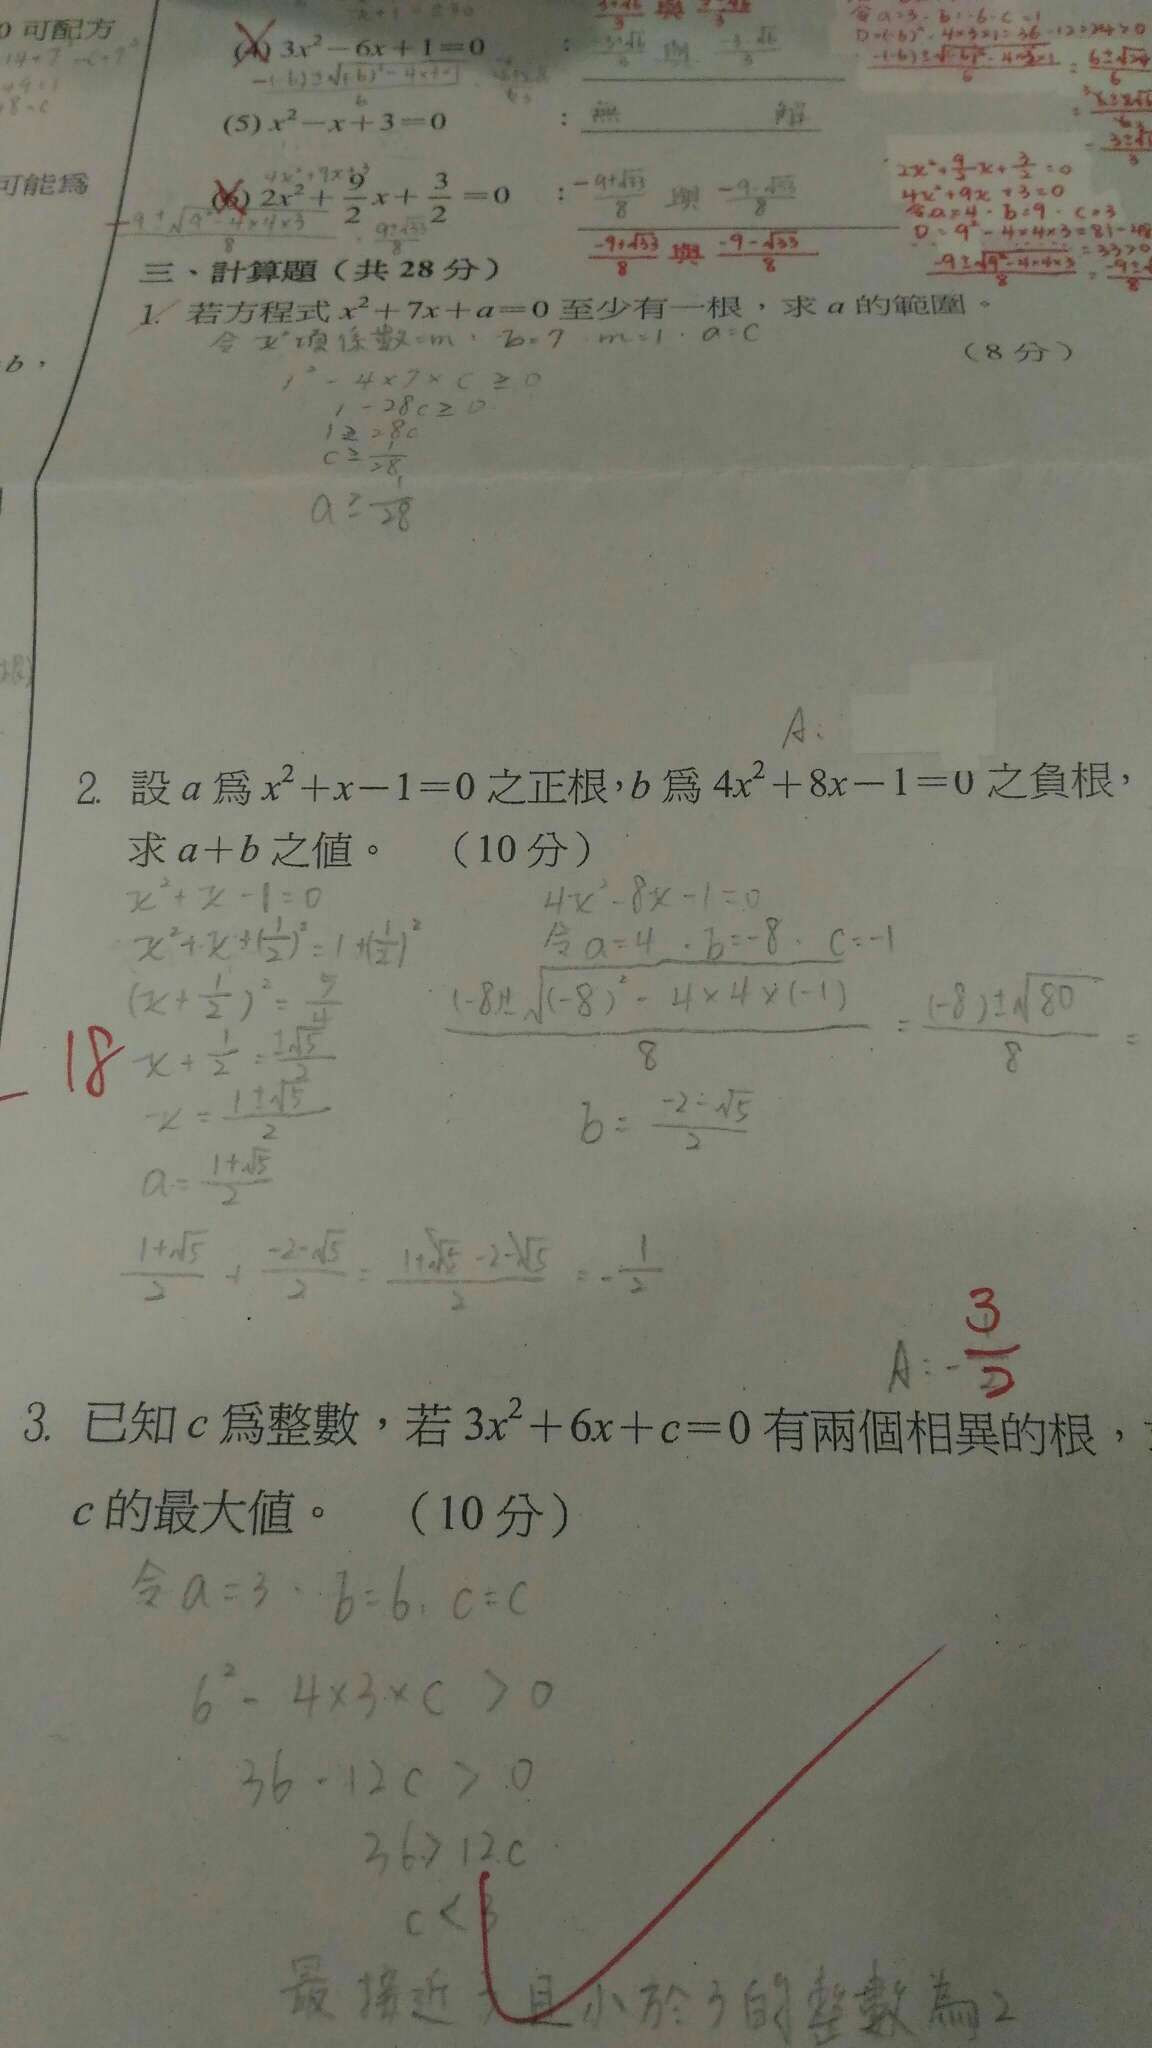 0 可配方
可能爲
(4) 3x²−6x+1=0 :
(5) x²−x+3=0 : 無 解
4x²+9x+3
(6) 2x²+9/2x+3/2=0 : −9+√33/8 與 −9−√33/8
−9±√9²−4×4×3/8 9±√33/8
−9+√33/8 與 −9−√33/8
令a=3 b=-6 c=1
2x²+9/2x+3/2=0
4x²+9x+3=0
令a=4 · b=9 · c=3
D=9²−4×4×3=81−48
=33>0
−9±√9²−4×4×3/8 =
三、計算題（共 28 分）
1. 若方程式 x²+7x+a=0 至少有一根，求 a 的範圍。
（8 分）
令 x²項係數=m · b=7 m=1 · a=c
1²−4×7×c≥0
1−28c≥0
1≥28c
c≥1/28
a≥1/28
A:
2. 設 a 爲 x²+x−1=0 之正根，b 爲 4x²+8x−1=0 之負根，
求 a+b 之值。 （10 分）
x²+x−1=0
x²+x+(1/2)²=1+(1/2)²
(x+1/2)²=5/4
x+1/2=±√5/2
x=1±√5/2
a=1+√5/2
4x²−8x−1=0
令a=4 · b=−8 · c=−1
(−8)±√(−8)²−4×4×(−1)/8 = (−8)±√80/8 =
b=−2−√5/2
−18
1+√5/2 + −2−√5/2 = 1+√5−2−√5/2 = −1/2
A:−3/2
3. 已知 c 爲整數，若 3x²+6x+c=0 有兩個相異的根，
c 的最大值。 （10 分）
令a=3 · b=6 · c=c
6²−4×3×c>0
36−12c>0
36>12c
c<3
最接近3且小於3的整數為2